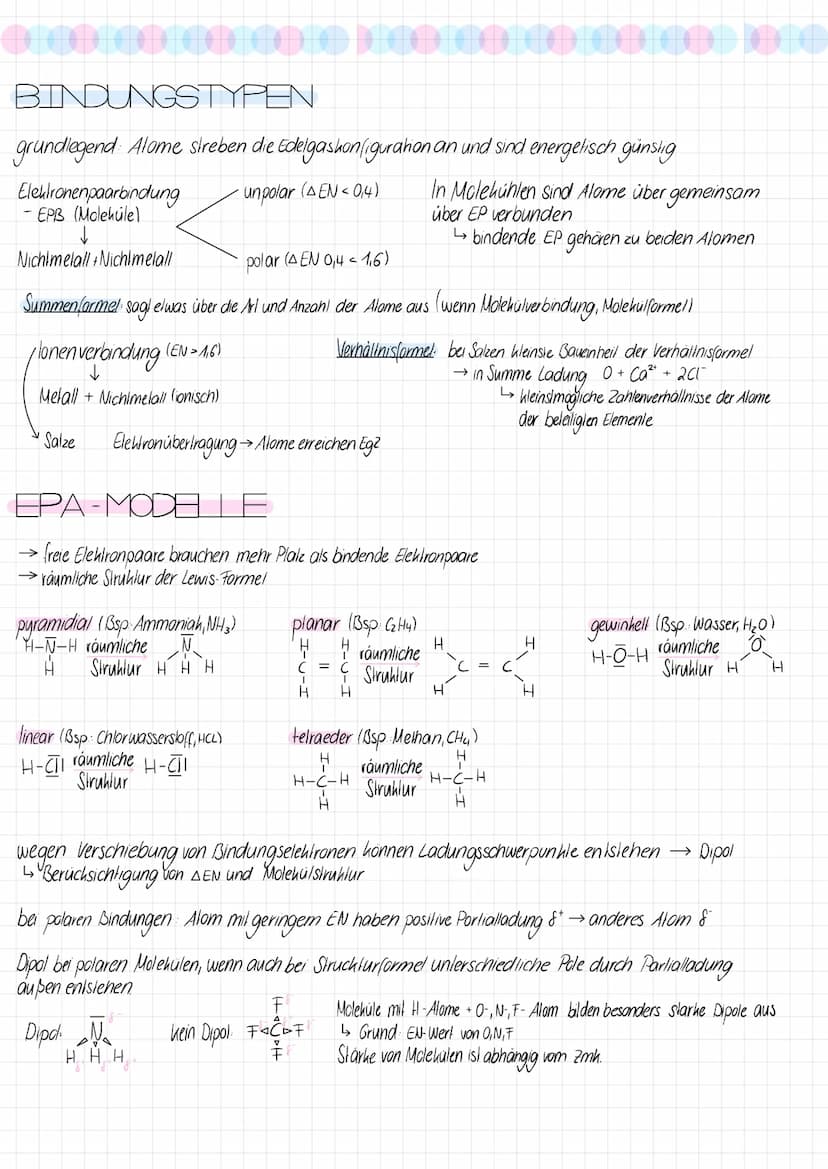 BINDUNGSTYPEN
grundlegend: Atome streben die Edelgaskonfiguration an und sind energetisch günstig
Elektronenpaarbindung
- EPB (Moleküle)
↓
Nichtmetall + Nichtmetall
unpolar (ΔEN < 0,4)
polar (ΔEN 0,4 < 1,6)
In Molekühlen sind Atome über gemeinsam
über EP verbunden
↳ bindende EP gehören zu beiden Atomen
Summenformel: sagt etwas über die Art und Anzahl der Atome aus (wenn Molekülverbindung, Molekülformel)
Ionenverbindung (EN > 1,6)
↓
Metall + Nichtmetall (ionisch)
Salze Elektronübertragung → Atome erreichen Egz
Verhältnisformel: bei Salzen kleinste Baueinheit der Verhältnisformel
→ in Summe Ladung 0 + Ca²⁺ + 2Cl⁻
↳ kleinstmögliche Zahlenverhältnisse der Atome
der beteiligten Elemente
EPA-MODELLE
→ freie Elektronpaare brauchen mehr Platz als bindende Elektronpaare
→ räumliche Struktur der Lewis-Formel
pyramidial (Bsp. Ammoniak, NH₃)
H-N-H räumliche N
H Struktur H H H
planar (Bsp. C₂H₄)
H H räumliche H H
C = C Struktur C = C
H H H H
gewinkelt (Bsp. Wasser, H₂O)
H-O-H räumliche O
Struktur H H
linear (Bsp. Chlorwasserstoff, HCL)
H-Cl räumliche H-Cl
Struktur
tetraeder (Bsp. Methan, CH₄)
H räumliche H
H-C-H Struktur H-C-H
H H
wegen Verschiebung von Bindungselektronen können Ladungsschwerpunkte entstehen → Dipol
↳ Berücksichtigung von ΔEN und Molekülstruktur
bei polaren Bindungen: Atom mit geringem EN haben positive Partialladung δ⁺ → anderes Atom δ⁻
Dipol bei polaren Molekülen, wenn auch bei Struckturformel unterschiedliche Pole durch Partialladung
außen entstehen
Dipol: N δ⁻
H H H
δ δ δ
kein Dipol: F δ⁻
F C F δ⁻
F δ⁻
Moleküle mit H-Atome + O-, N-, F- Atom bilden besonders starke Dipole aus
↳ Grund: EN-Wert von O, N, F
Stärke von Molekülen ist abhängig vom zmk.